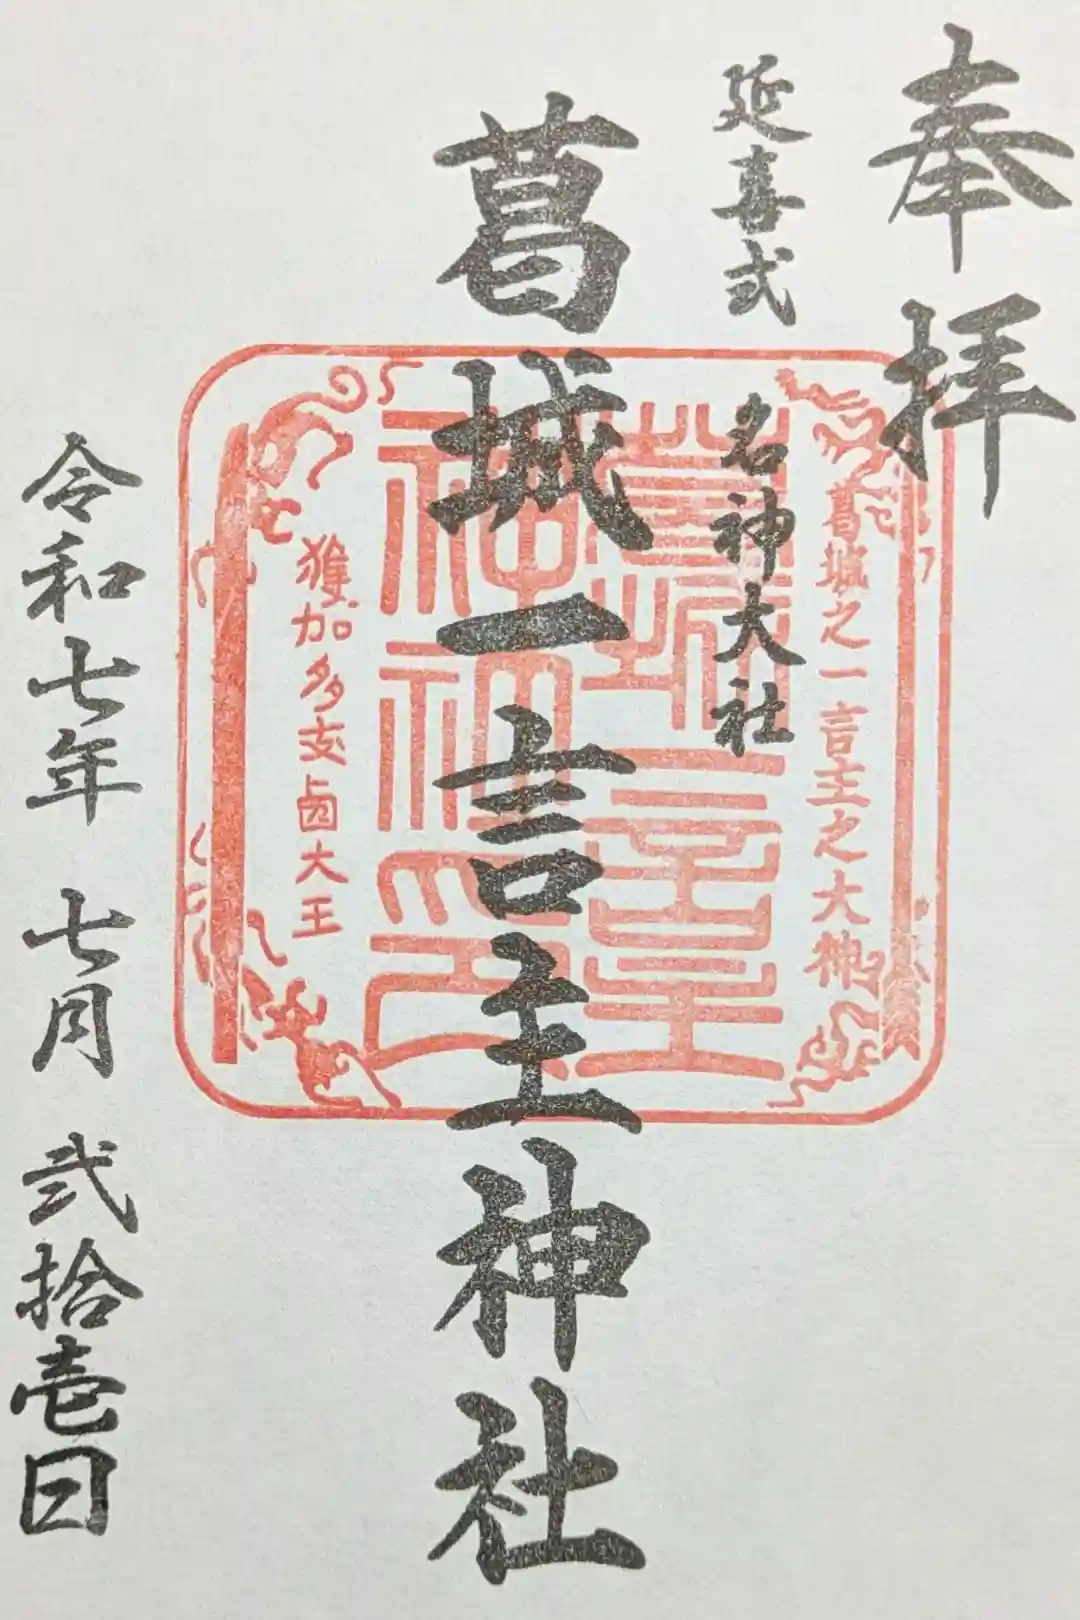 奉拝
延喜式 名神大社
葛城之一言主之大神
葛城一言主神社
葛城一言主
神社神印
獲加多支鹵大王
令和七年 七月 弐拾壱日